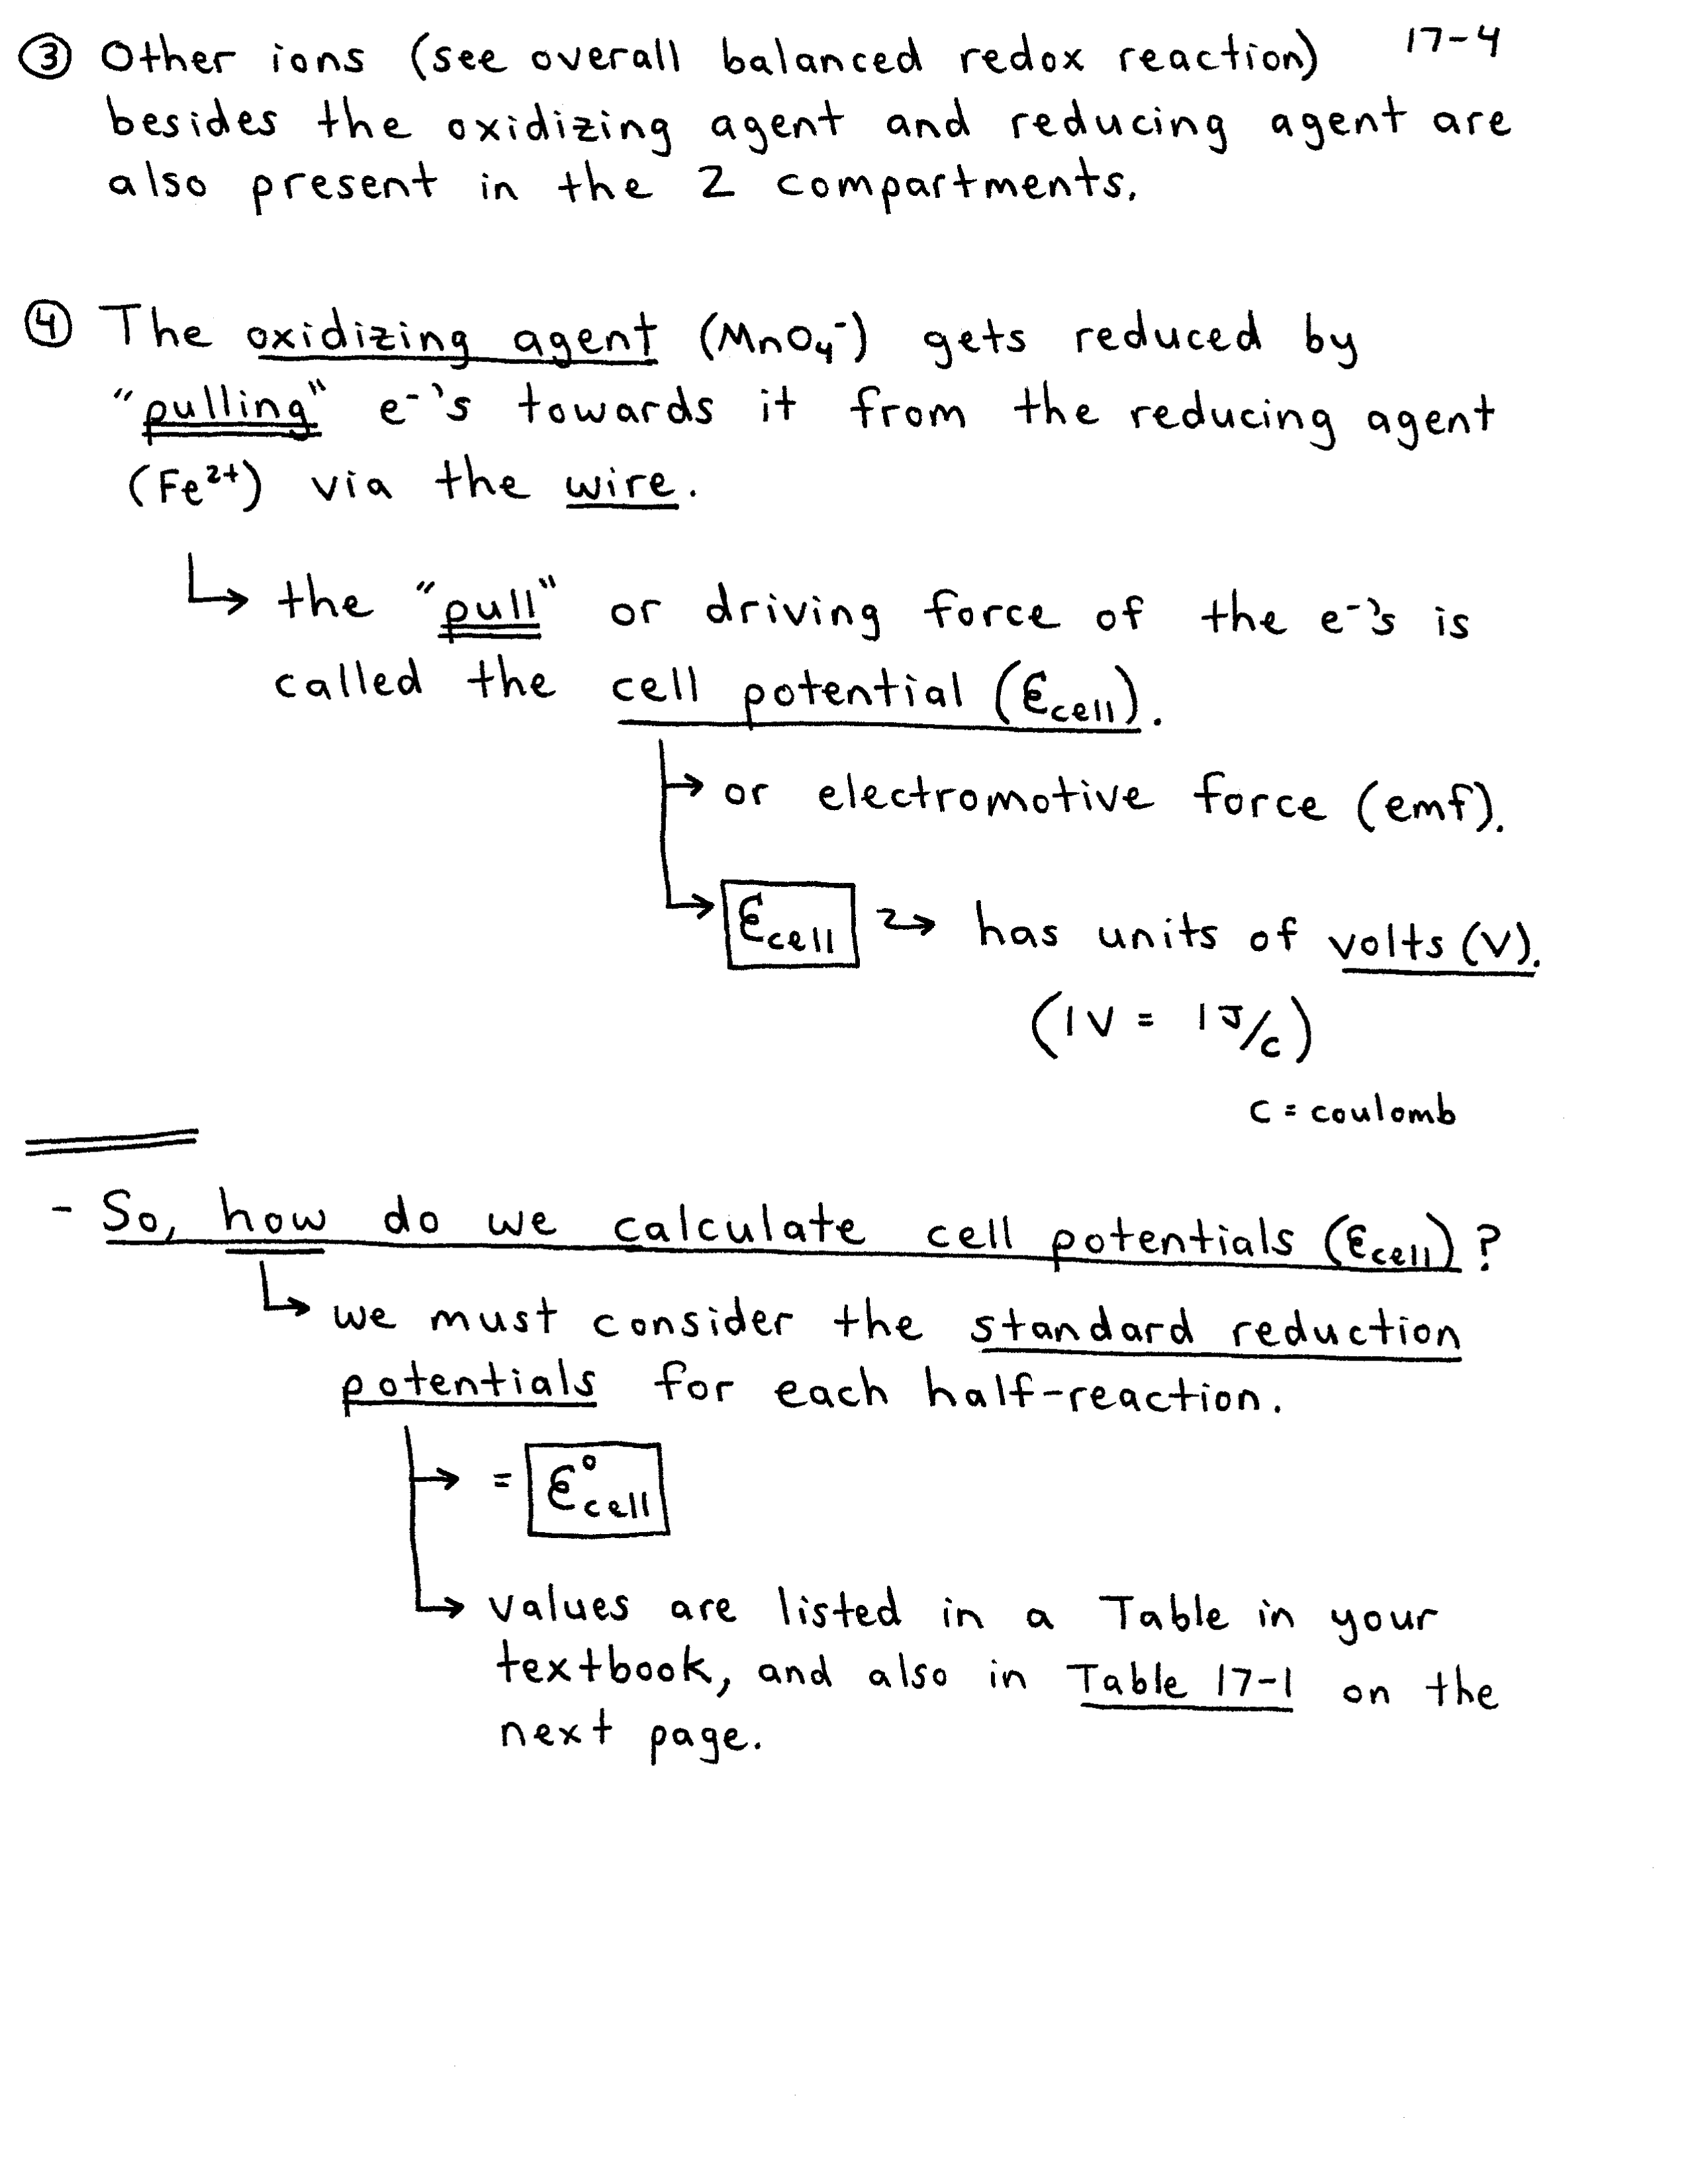 17-4
③ Other ions (see overall balanced redox reaction)
besides the oxidizing agent and reducing agent are
also present in the 2 compartments.
④ The oxidizing agent (MnO₄⁻) gets reduced by
"pulling" e⁻'s towards it from the reducing agent
(Fe²⁺) via the wire.
↳ the "pull" or driving force of the e⁻'s is
called the cell potential (Ɛcell).
↳ or electromotive force (emf).
↳ Ɛcell → has units of volts (V).
(1V = 1 J/C)
C = coulomb
- So, how do we calculate cell potentials (Ɛcell)?
↳ we must consider the standard reduction
potentials for each half-reaction.
↳ = Ɛ°cell
↳ values are listed in a Table in your
textbook, and also in Table 17-1 on the
next page.